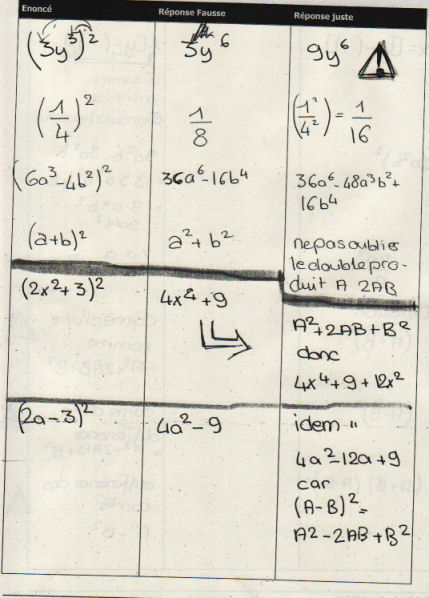 Enoncé Réponse Fausse Réponse juste
(3y³)² 3y⁶ 9y⁶
(1/4)² 1/8 (1²/4²) = 1/16
(6a³-4b²)² 36a⁶-16b⁴ 36a⁶-48a³b²+
16b⁴
(a+b)² a²+b² ne pas oublier
le double pro-
duit A 2AB
(2x²+3)² 4x⁴+9
A²+2AB+B²
donc
4x⁴+9+12x²
(2a-3)² 4a²-9 idem "
4a²-12a+9
car
(A-B)²=
A²-2AB+B²